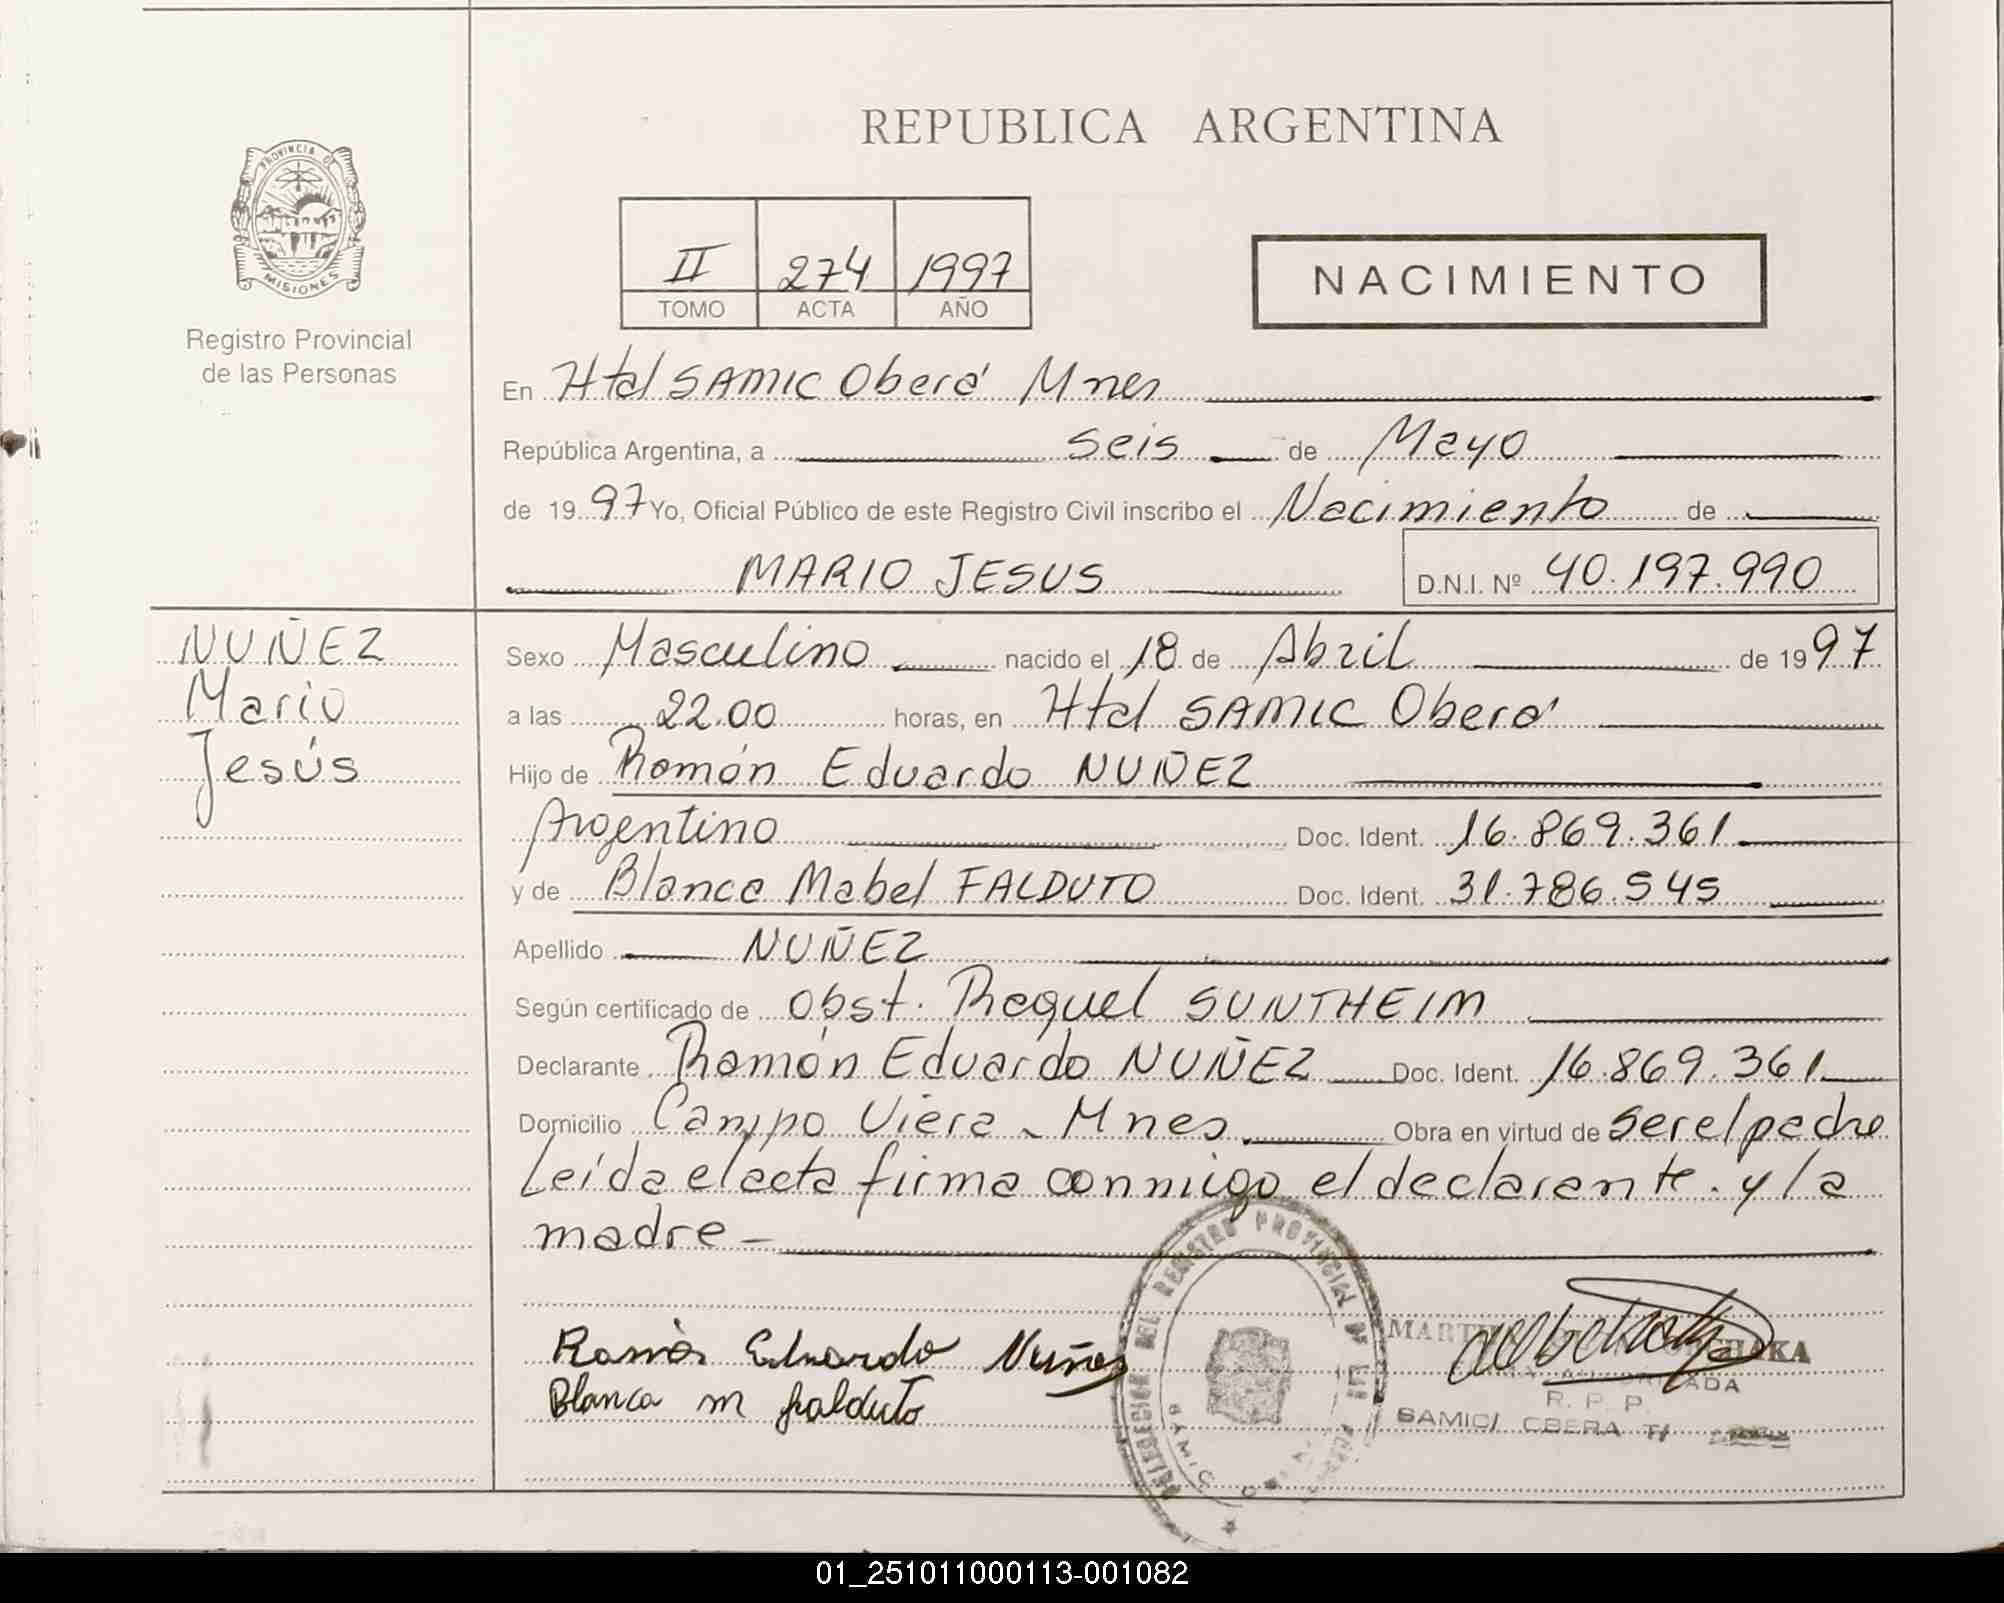 REPUBLICA ARGENTINA
PROVINCIA DE
MISIONES
Registro Provincial
de las Personas
II 274 1997
TOMO ACTA AÑO
NACIMIENTO
En Htal SAMIC Oberá Mnes
República Argentina, a seis de Mayo
de 1997 Yo, Oficial Público de este Registro Civil inscribo el Nacimiento de
MARIO JESUS D.N.I. Nº 40.197.990
NUÑEZ
Mario
Jesús
Sexo Masculino nacido el 18 de Abril de 1997
a las 22.00 horas, en Htal SAMIC Oberá
Hijo de Ramón Eduardo NUÑEZ
Argentino Doc. Ident. 16.869.361
y de Blanca Mabel FALDUTO Doc. Ident. 31.786.545
Apellido NUÑEZ
Según certificado de Obst. Raquel SUNTHEIM
Declarante Ramón Eduardo NUÑEZ Doc. Ident. 16.869.361
Domicilio Campo Viera - Mnes. Obra en virtud de ser el padre
Leída el acta firma conmigo el declarante. y la
madre -
Ramón Eduardo Nuñes
Blanca m falduto
DELEGACION DEL REGISTRO PROVINCIAL DE LAS
SAMIC
R. P. P.
SAMIC/ OBERA
01_251011000113-001082